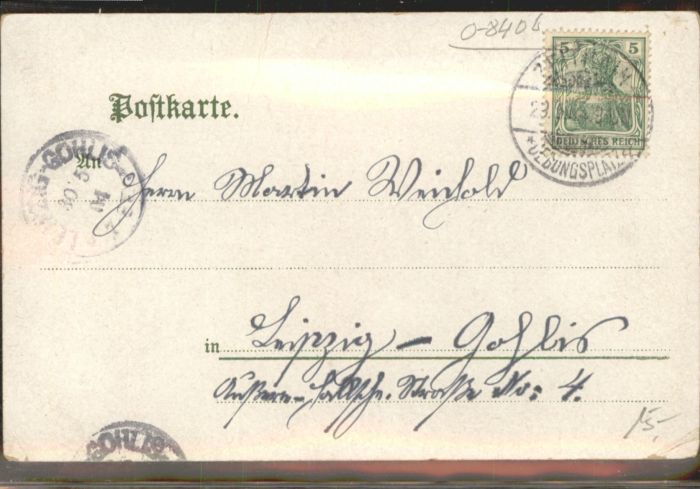 0-8406
5 5
DEUTSCHES REICH
Postkarte.
ÜBUNGSPLATZ
LEIPZIG-GOHLIS
30 5
An Herrn Martin Weichold
in Leipzig – Gohlis
Äußere-Hallsche. Straße No: 4.
15.-
GOHLIS